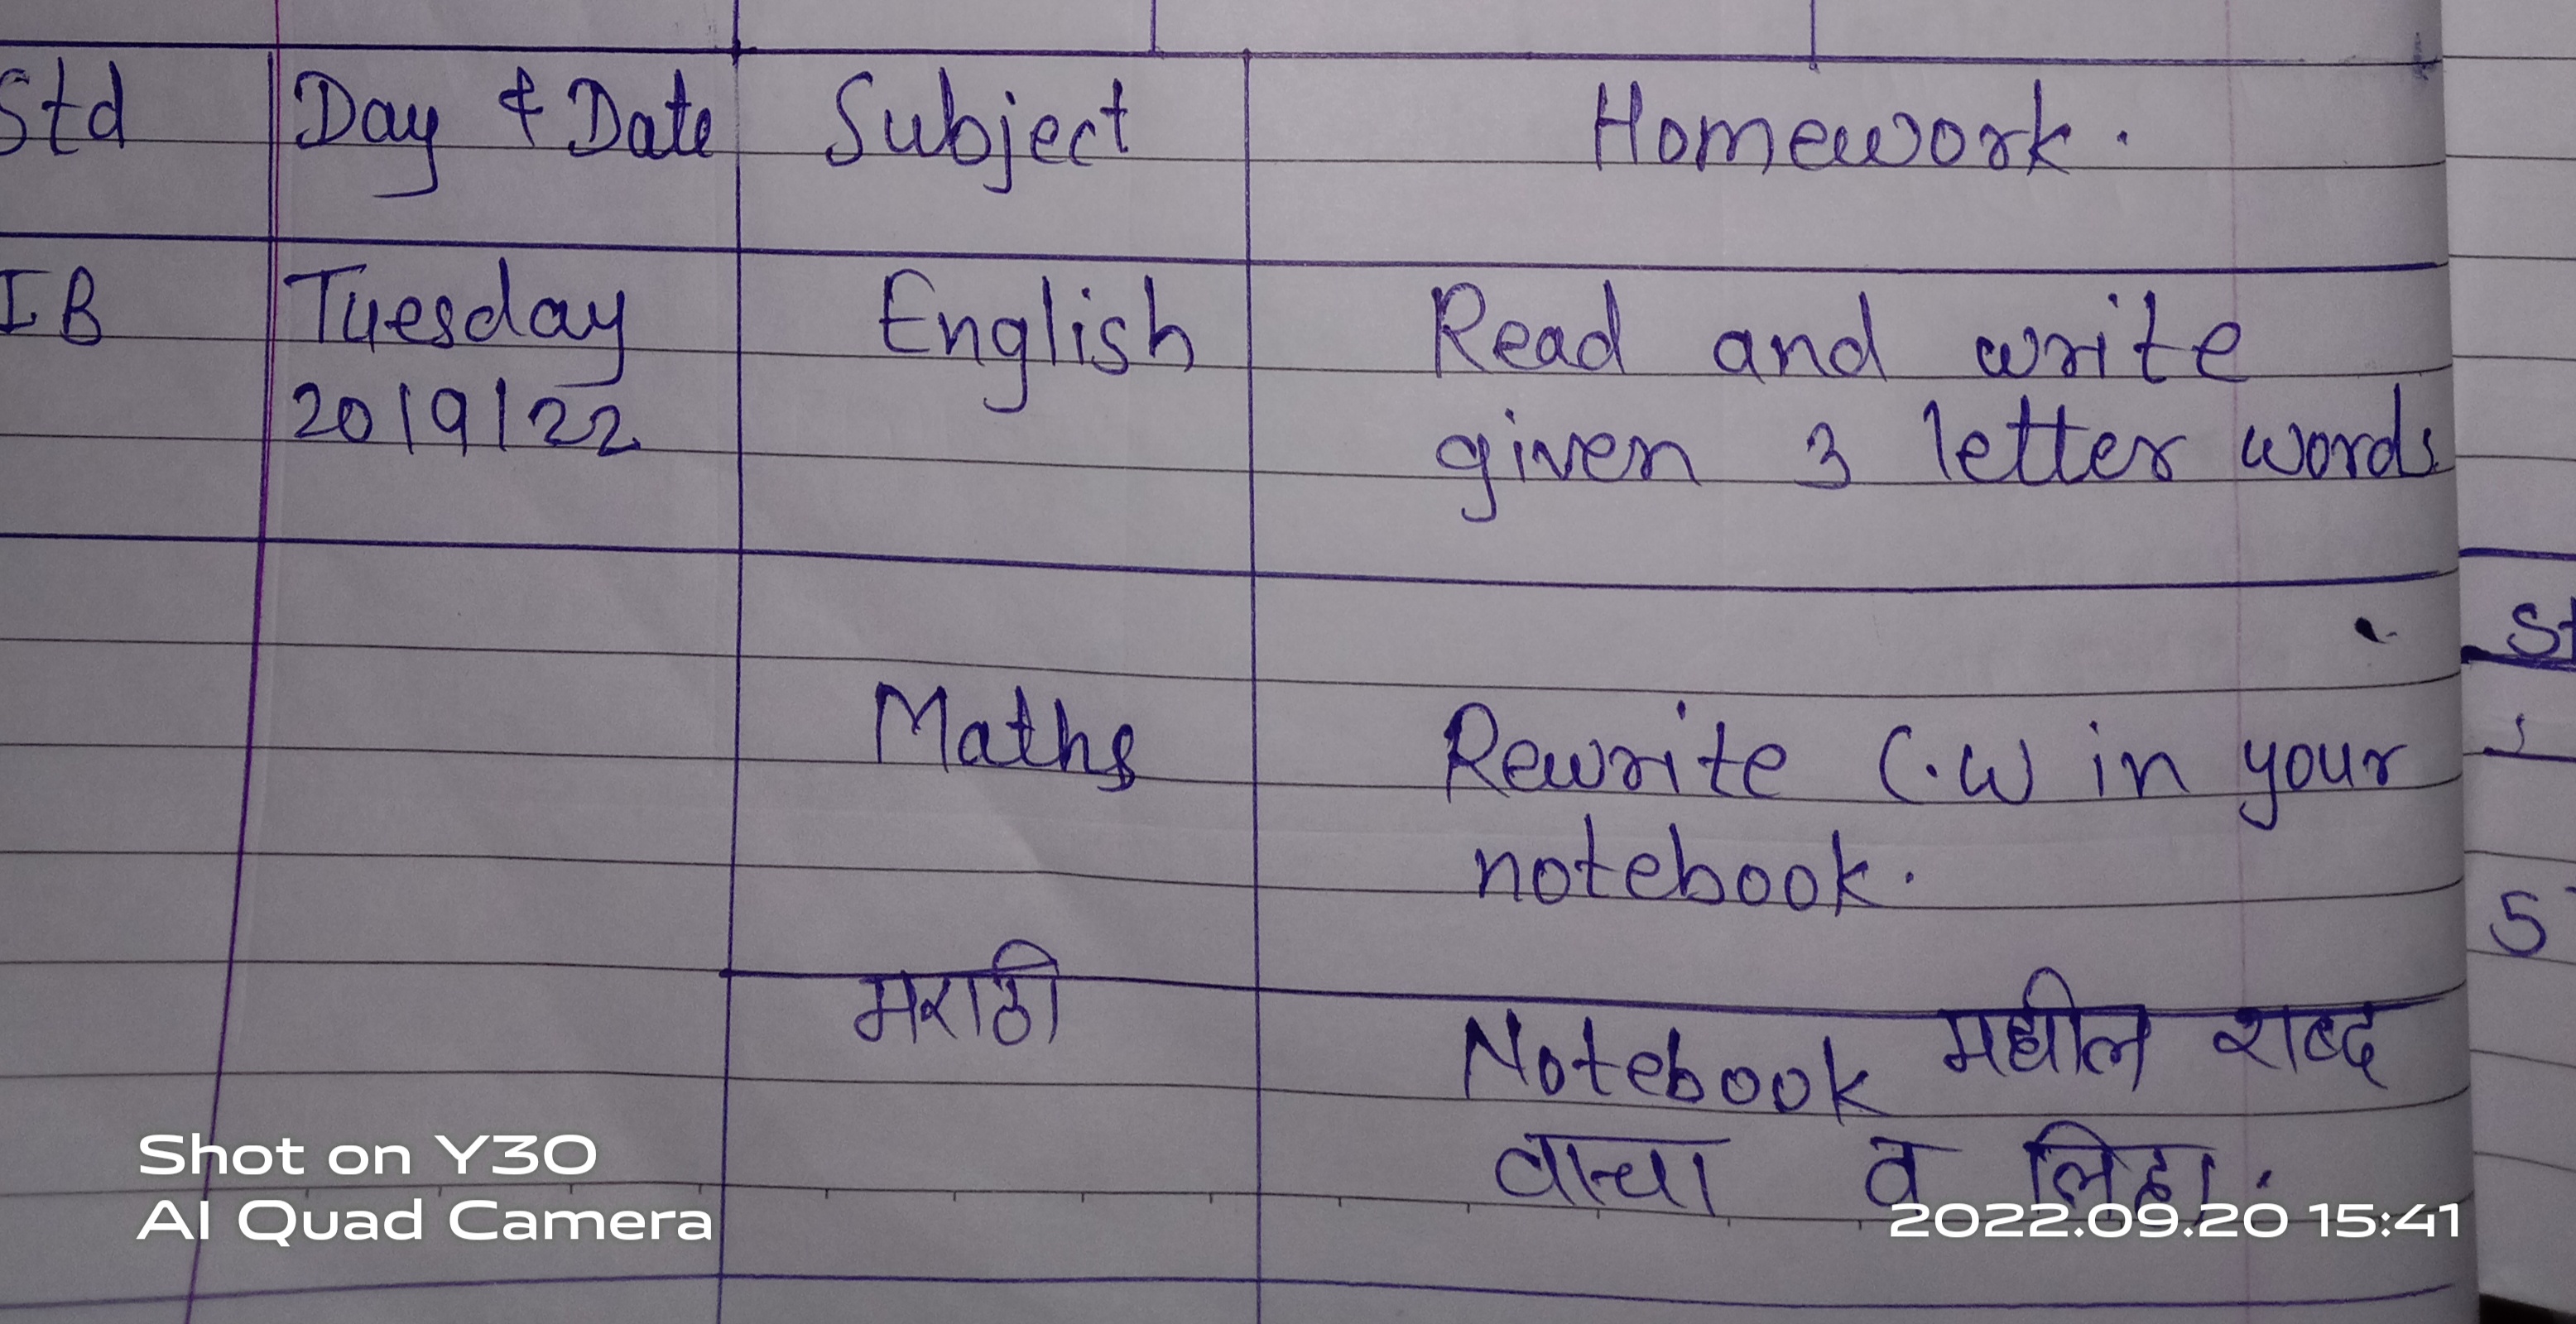 Std Day & Date Subject Homework.
IB Tuesday English Read and write
20/9/22 given 3 letter words.
Maths Rewrite C.W in your
notebook.
मराठी Notebook मधील शब्द
वाचा व लिहा.
Shot on Y30
AI Quad Camera
2022.09.20 15:41